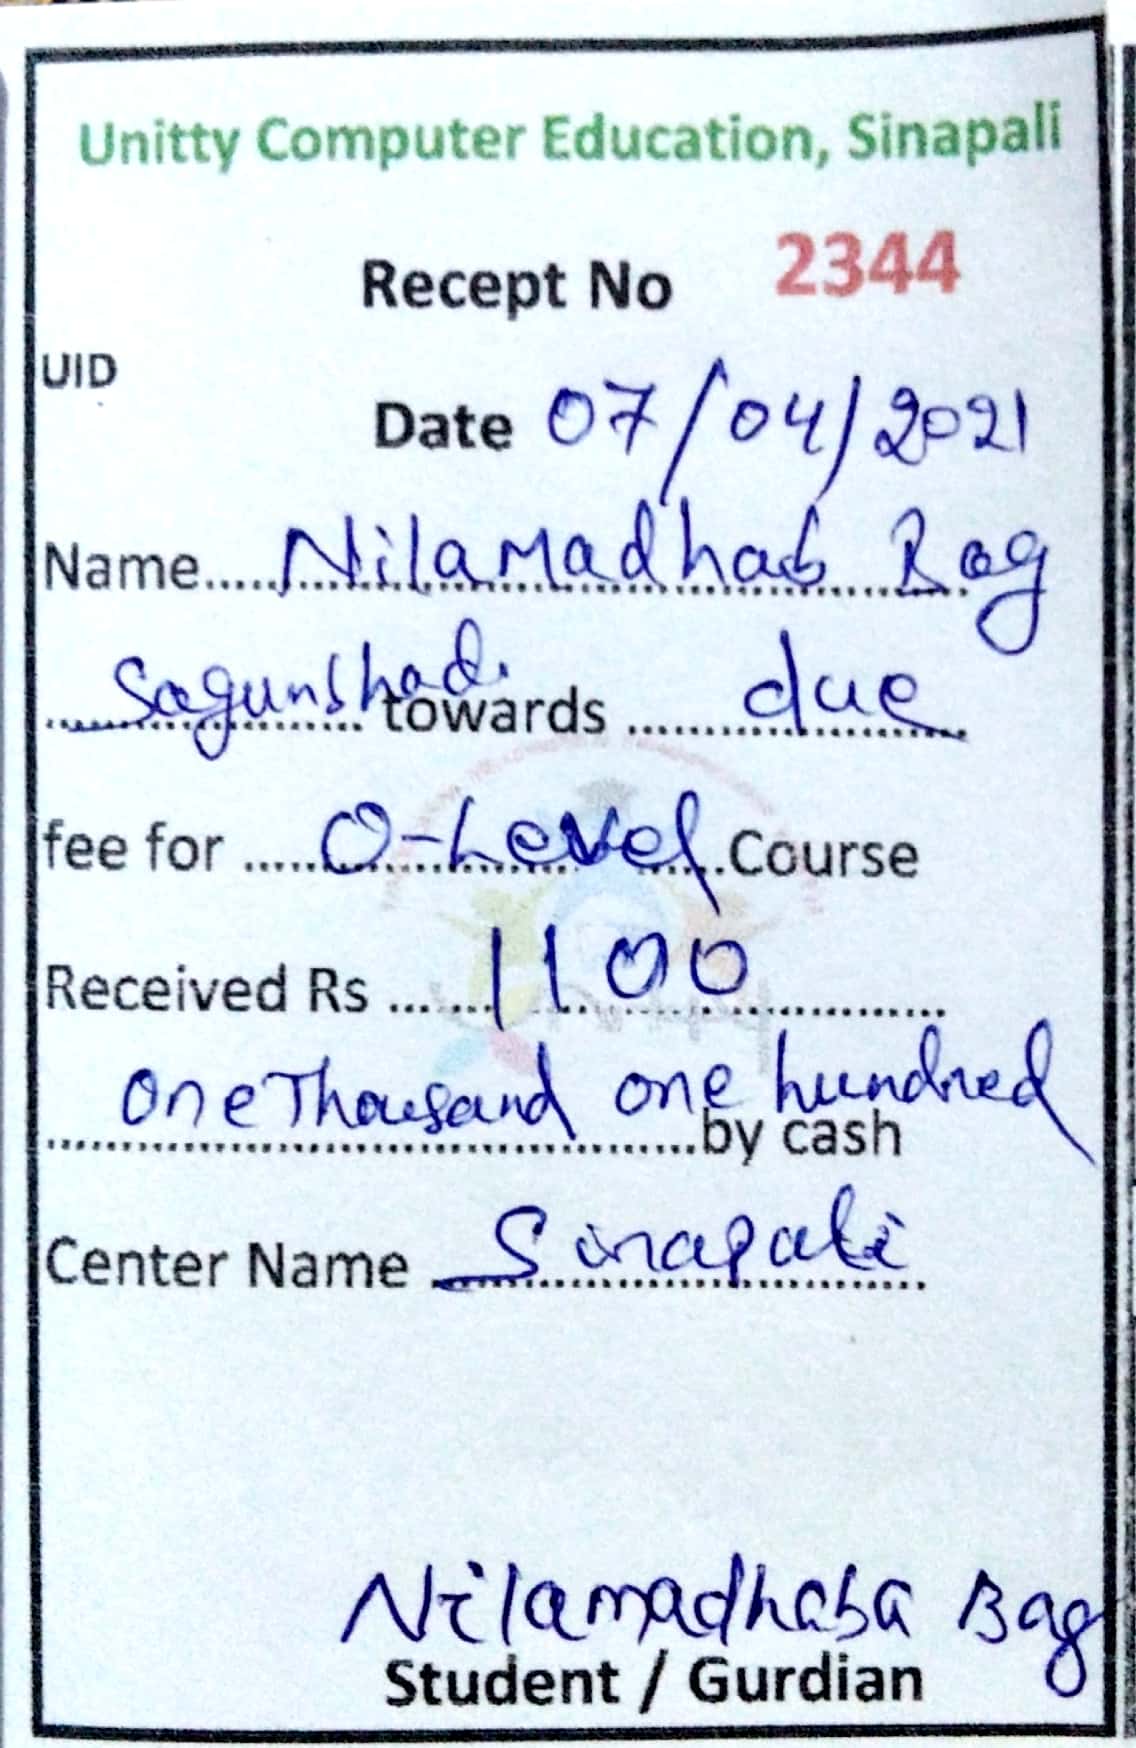 Unitty Computer Education, Sinapali
Recept No 2344
UID
Date 07/04/2021
Name..... Nilamadhab Bag
Sagunbhadi towards ..... due
fee for ..... O-Level Course
Received Rs ..... 1100
One Thousand one hundred
by cash
Center Name Sinapali
Nilamadhaba Bag
Student / Gurdian